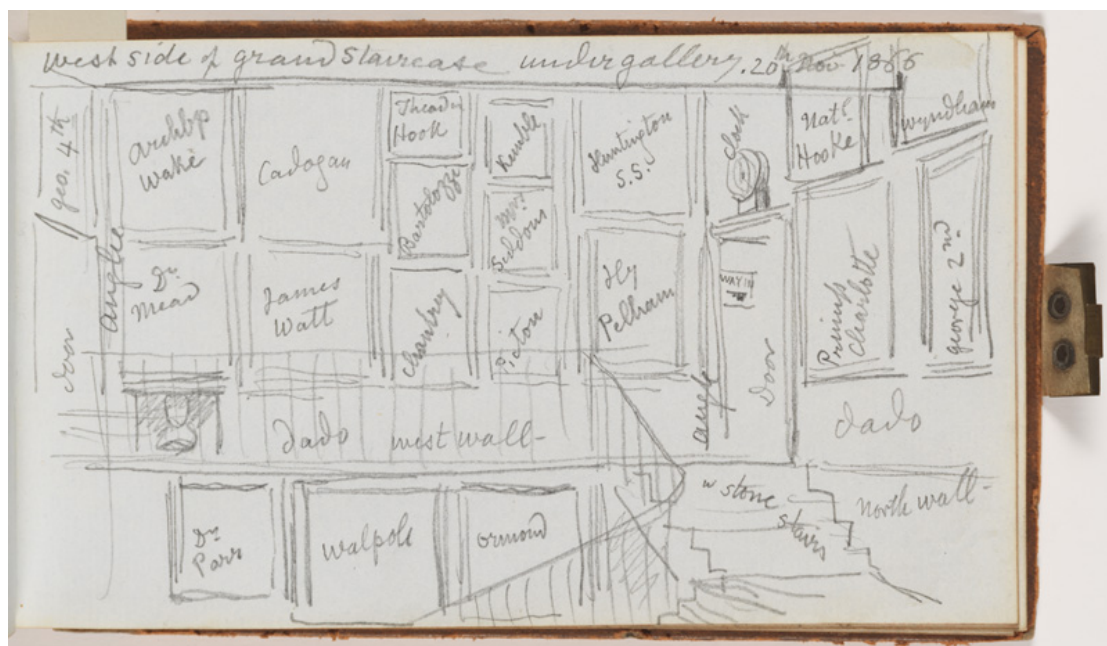 west side of grand staircase under gallery. 20th Nov 1866
geo. 4th
Archbp
Wake
Cadogan
Theadr
Hook
Kemble
Huntington
S.S.
clock
Natl
Hooke
Wyndham
Bartolozzi
Mrs
Siddons
angle
Dr
Mead
James
Watt
Chantrey
Picton
Hy
Pelham
WAY IN
Princess
Charlotte
george 2nd.
door
angle
Door
dado west wall-
dado
Dr
Parr
walpole
ormond
stone
stairs
North wall-